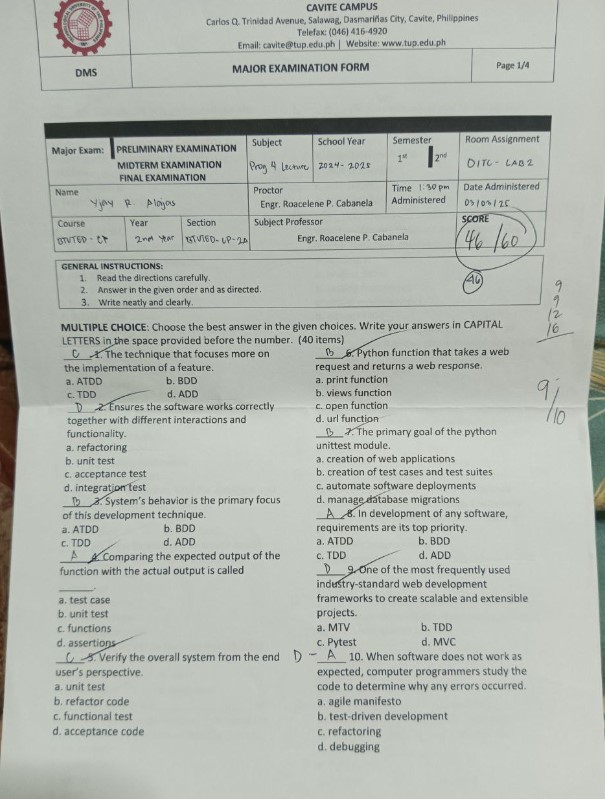 CAVITE CAMPUS
Carlos Q. Trinidad Avenue, Salawag, Dasmariñas City, Cavite, Philippines
Telefax: (046) 416-4920
Email: cavite@tup.edu.ph | Website: www.tup.edu.ph
DMS
MAJOR EXAMINATION FORM
Page 1/4
Major Exam:
PRELIMINARY EXAMINATION
MIDTERM EXAMINATION
FINAL EXAMINATION
Subject
Prog 4 Lecture
School Year
2024-2025
Semester
1st
2nd
Room Assignment
DITC - LAB 2
Name
Yjay R. Alojos
Proctor
Engr. Roacelene P. Cabanela
Time 1:30 pm
Administered
Date Administered
03/03/25
Course
BTVTED - CP
Year
2nd Year
Section
BTVTED-CP-2A
Subject Professor
Engr. Roacelene P. Cabanela
SCORE
46/60
GENERAL INSTRUCTIONS:
1. Read the directions carefully.
2. Answer in the given order and as directed.
3. Write neatly and clearly.
46
9
9
12
16
9/10
MULTIPLE CHOICE: Choose the best answer in the given choices. Write your answers in CAPITAL
LETTERS in the space provided before the number. (40 items)
C 1. The technique that focuses more on
the implementation of a feature.
a. ATDD b. BDD
c. TDD d. ADD
D 2. Ensures the software works correctly
together with different interactions and
functionality.
a. refactoring
b. unit test
c. acceptance test
d. integration test
B 3. System's behavior is the primary focus
of this development technique.
a. ATDD b. BDD
c. TDD d. ADD
A 4. Comparing the expected output of the
function with the actual output is called
______.
a. test case
b. unit test
c. functions
d. assertions
C 5. Verify the overall system from the end
user's perspective.
a. unit test
b. refactor code
c. functional test
d. acceptance code
B 6. Python function that takes a web
request and returns a web response.
a. print function
b. views function
c. open function
d. url function
B 7. The primary goal of the python
unittest module.
a. creation of web applications
b. creation of test cases and test suites
c. automate software deployments
d. manage database migrations
A 8. In development of any software,
requirements are its top priority.
a. ATDD b. BDD
c. TDD d. ADD
D 9. One of the most frequently used
industry-standard web development
frameworks to create scalable and extensible
projects.
a. MTV b. TDD
c. Pytest d. MVC
D - A 10. When software does not work as
expected, computer programmers study the
code to determine why any errors occurred.
a. agile manifesto
b. test-driven development
c. refactoring
d. debugging